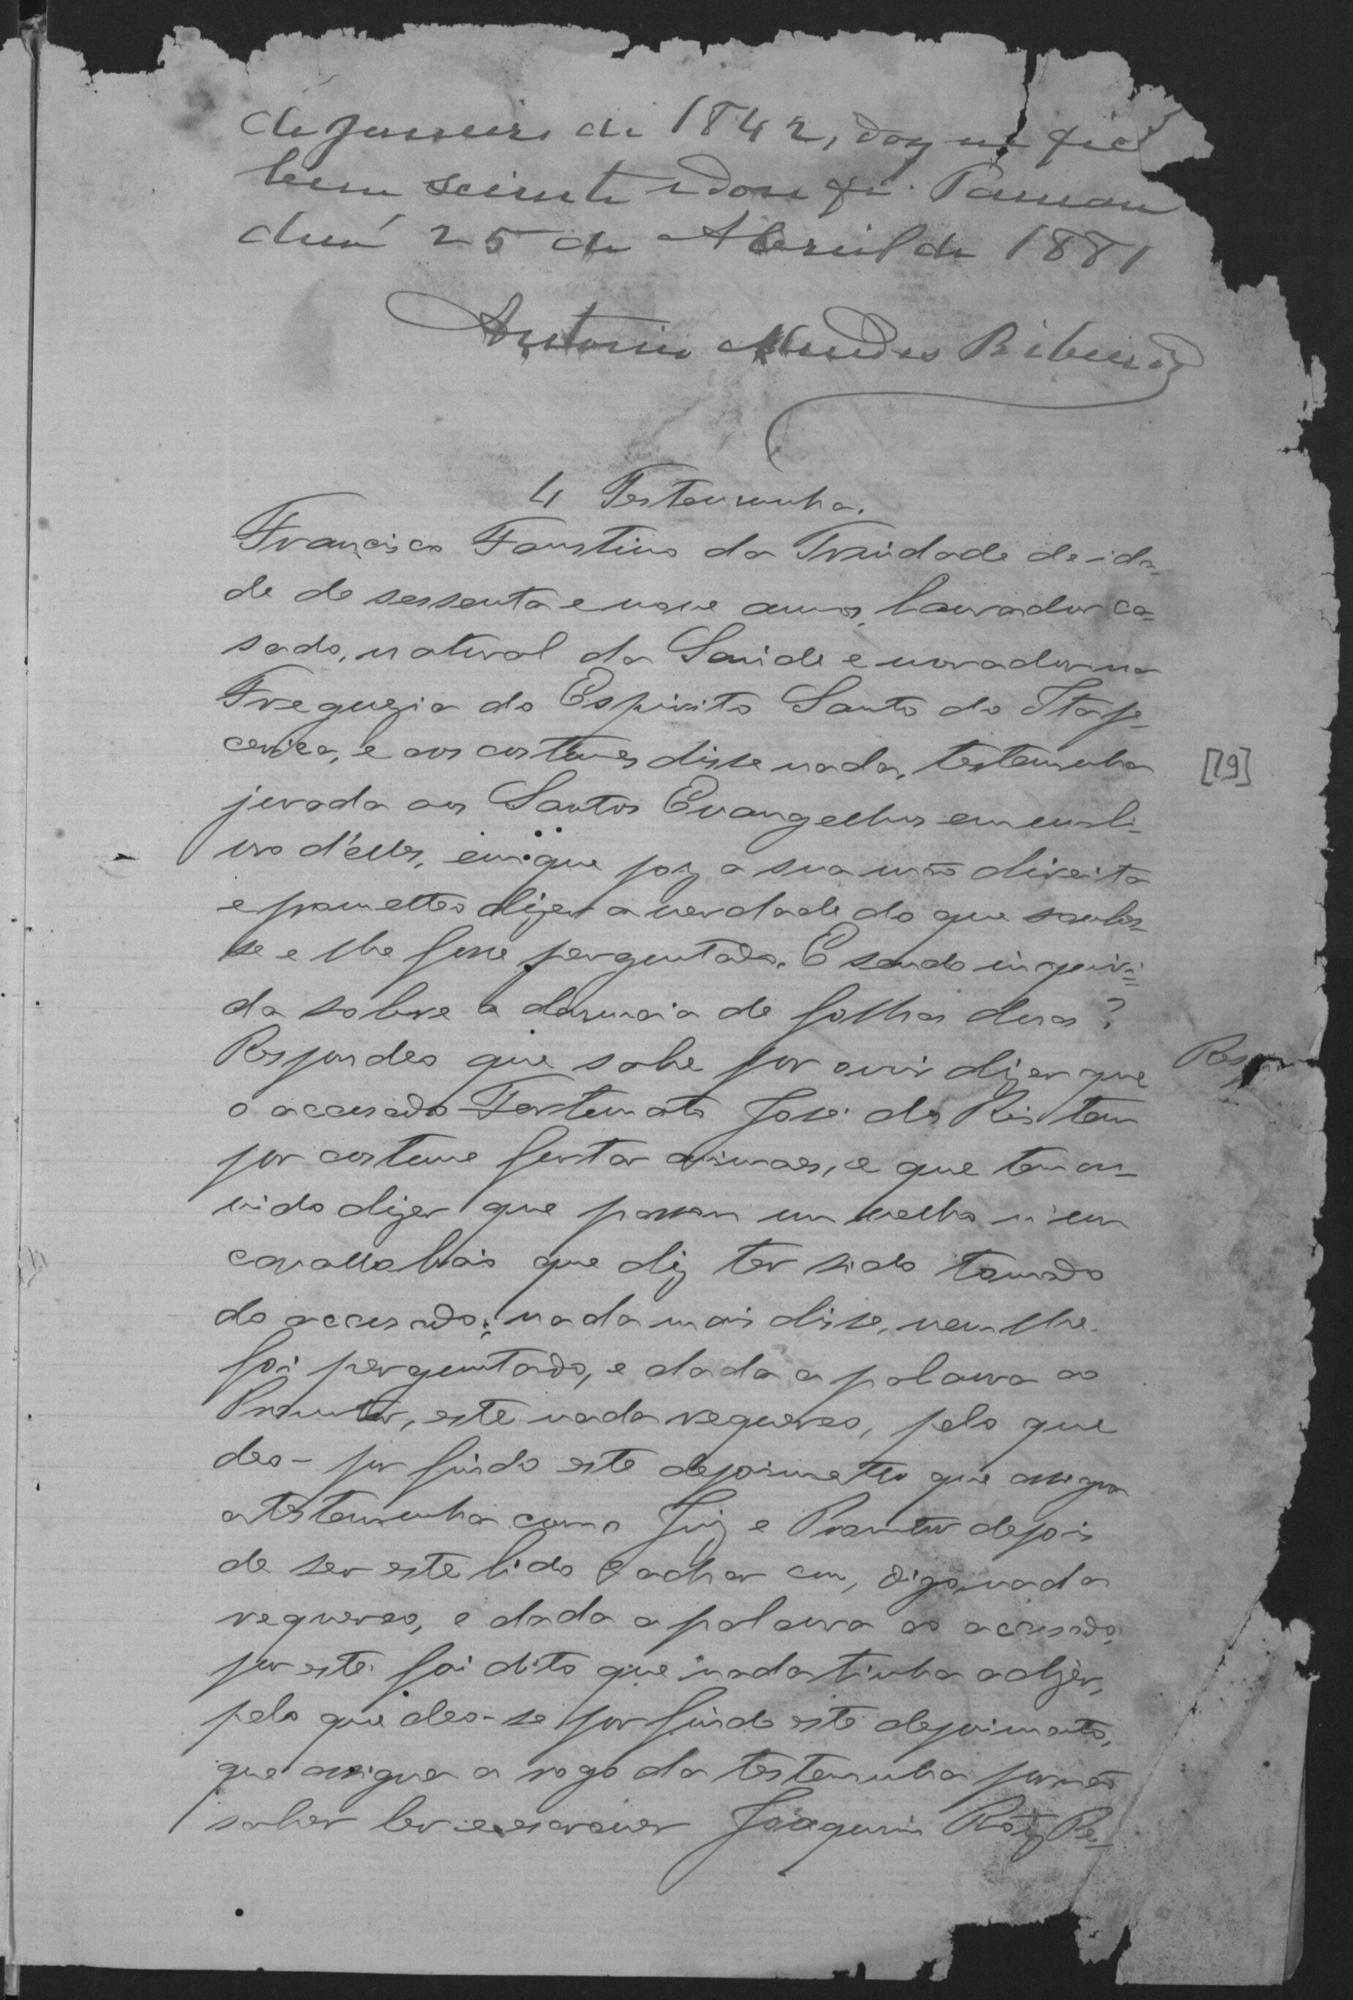 de Janeiro de 1842, doq me fic
bem sciente e dou fé. Tamanduá
duá 25 de Abril de 1881
Antonio Mendes Ribeiro
4 Testemunha.
Francisco Faustino da Trindade de ida-
de de sessenta e nove annos, lavrador ca-
sado, natural da Saúde e morador na
Freguezia do Espirito Santo do Itape-
cerica, e aos costumes disse nada, testemunha
[19]
jurada aos Santos Evangelhos em um li-
vro d'elles, em que poz a sua mão direita
e prometteo dizer a verdade do que soubes-
se e lhe fosse perguntado. E sendo inquiri-
da sobre a denuncia de folhas duas?
Respondeo que sabe por ouvir dizer que
Resp
o accusado Fortunato José dos Reis tem
por costume furtar animaes, e que tem ou-
vido dizer que
cavallo baio que diz ter sido tomado
do accusado; nada mais disse, nem lhe
foi perguntado, e dada a palavra ao
Promotor, este nada requereo, pelo que
deo-se por findo este depoimento que assigna
a testemunha com o Juiz e Promotor depois
de ser este lido e achar con, digo, nada
requereo, e dada a palavra ao accusado,
por este foi dito que nada tinha a dizer,
pelo que deo-se por findo este depoimento,
que assigna a rogo da testemunha por não
saber ler e escrever Joaquim Roiz Pe-